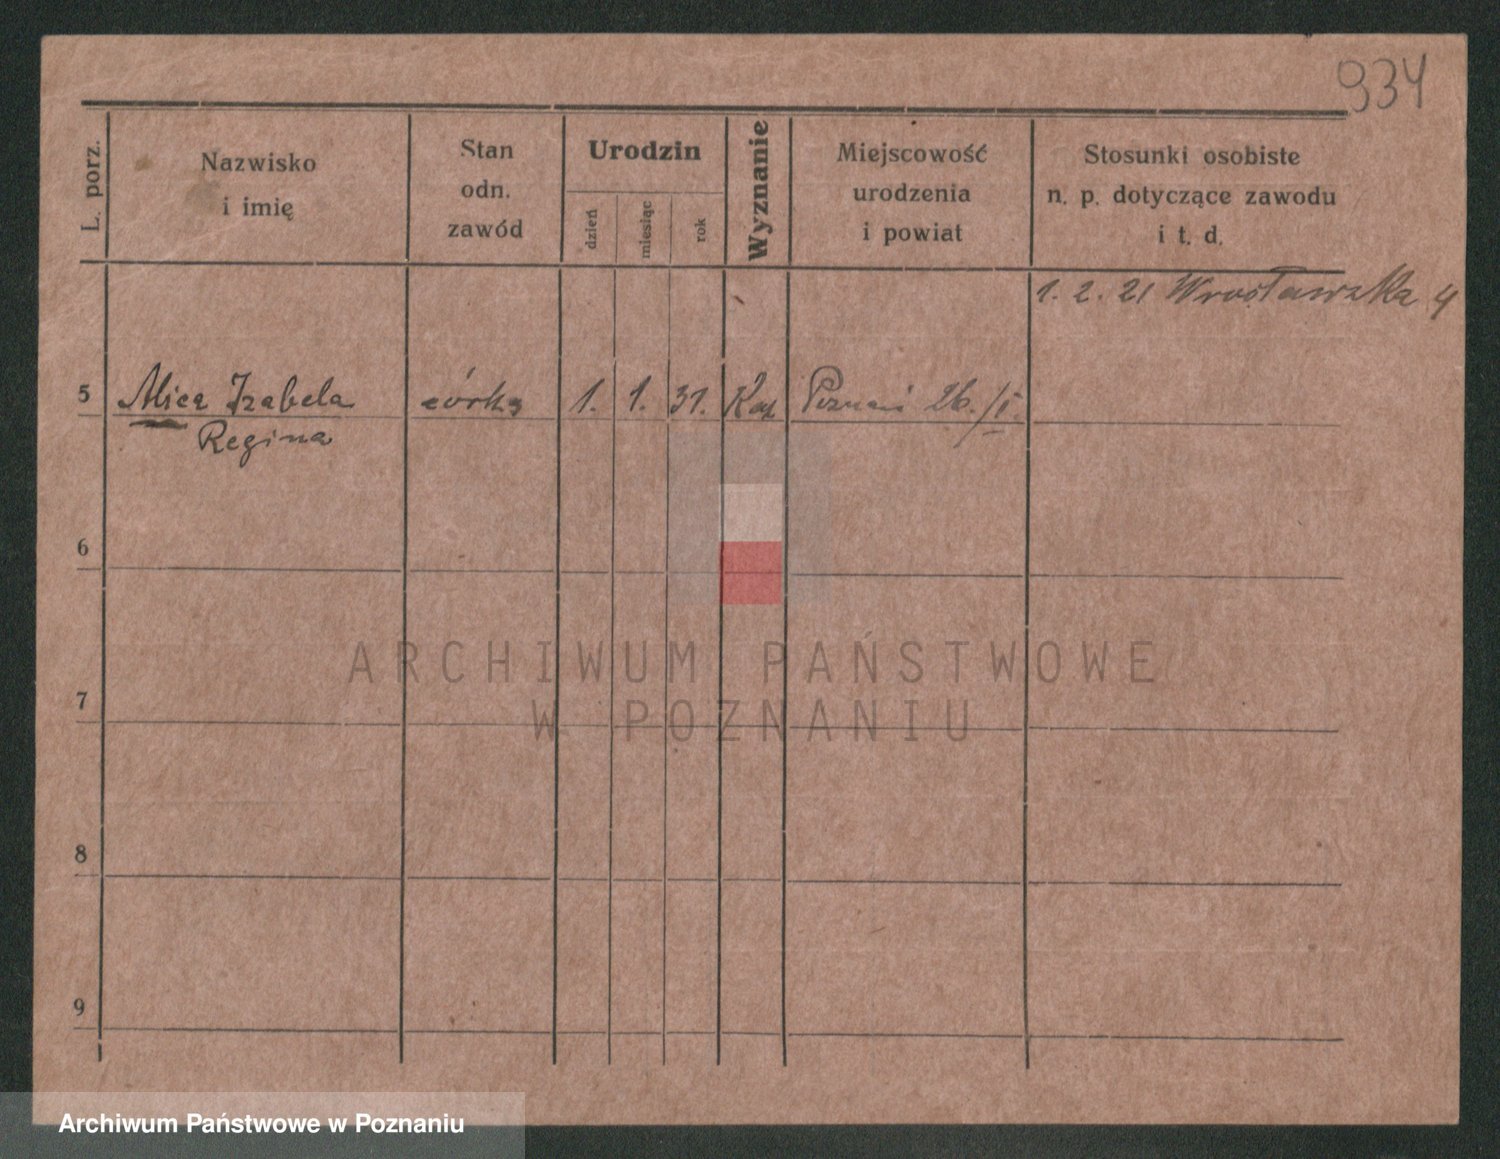 934
L. porz.
Nazwisko
i imię
Stan
odn.
zawód
Urodzin
dzień
miesiąc
rok
Wyznanie
Miejscowość
urodzenia
i powiat
Stosunki osobiste
n. p. dotyczące zawodu
i t. d.
1. 2. 21 Wrocławska 4
5 Alica Izabela córka 1. 1. 31. Kat Poznań 26./I.
Regina
6
7
8
9
ARCHIWUM PAŃSTWOWE
W POZNANIU
Archiwum Państwowe w Poznaniu